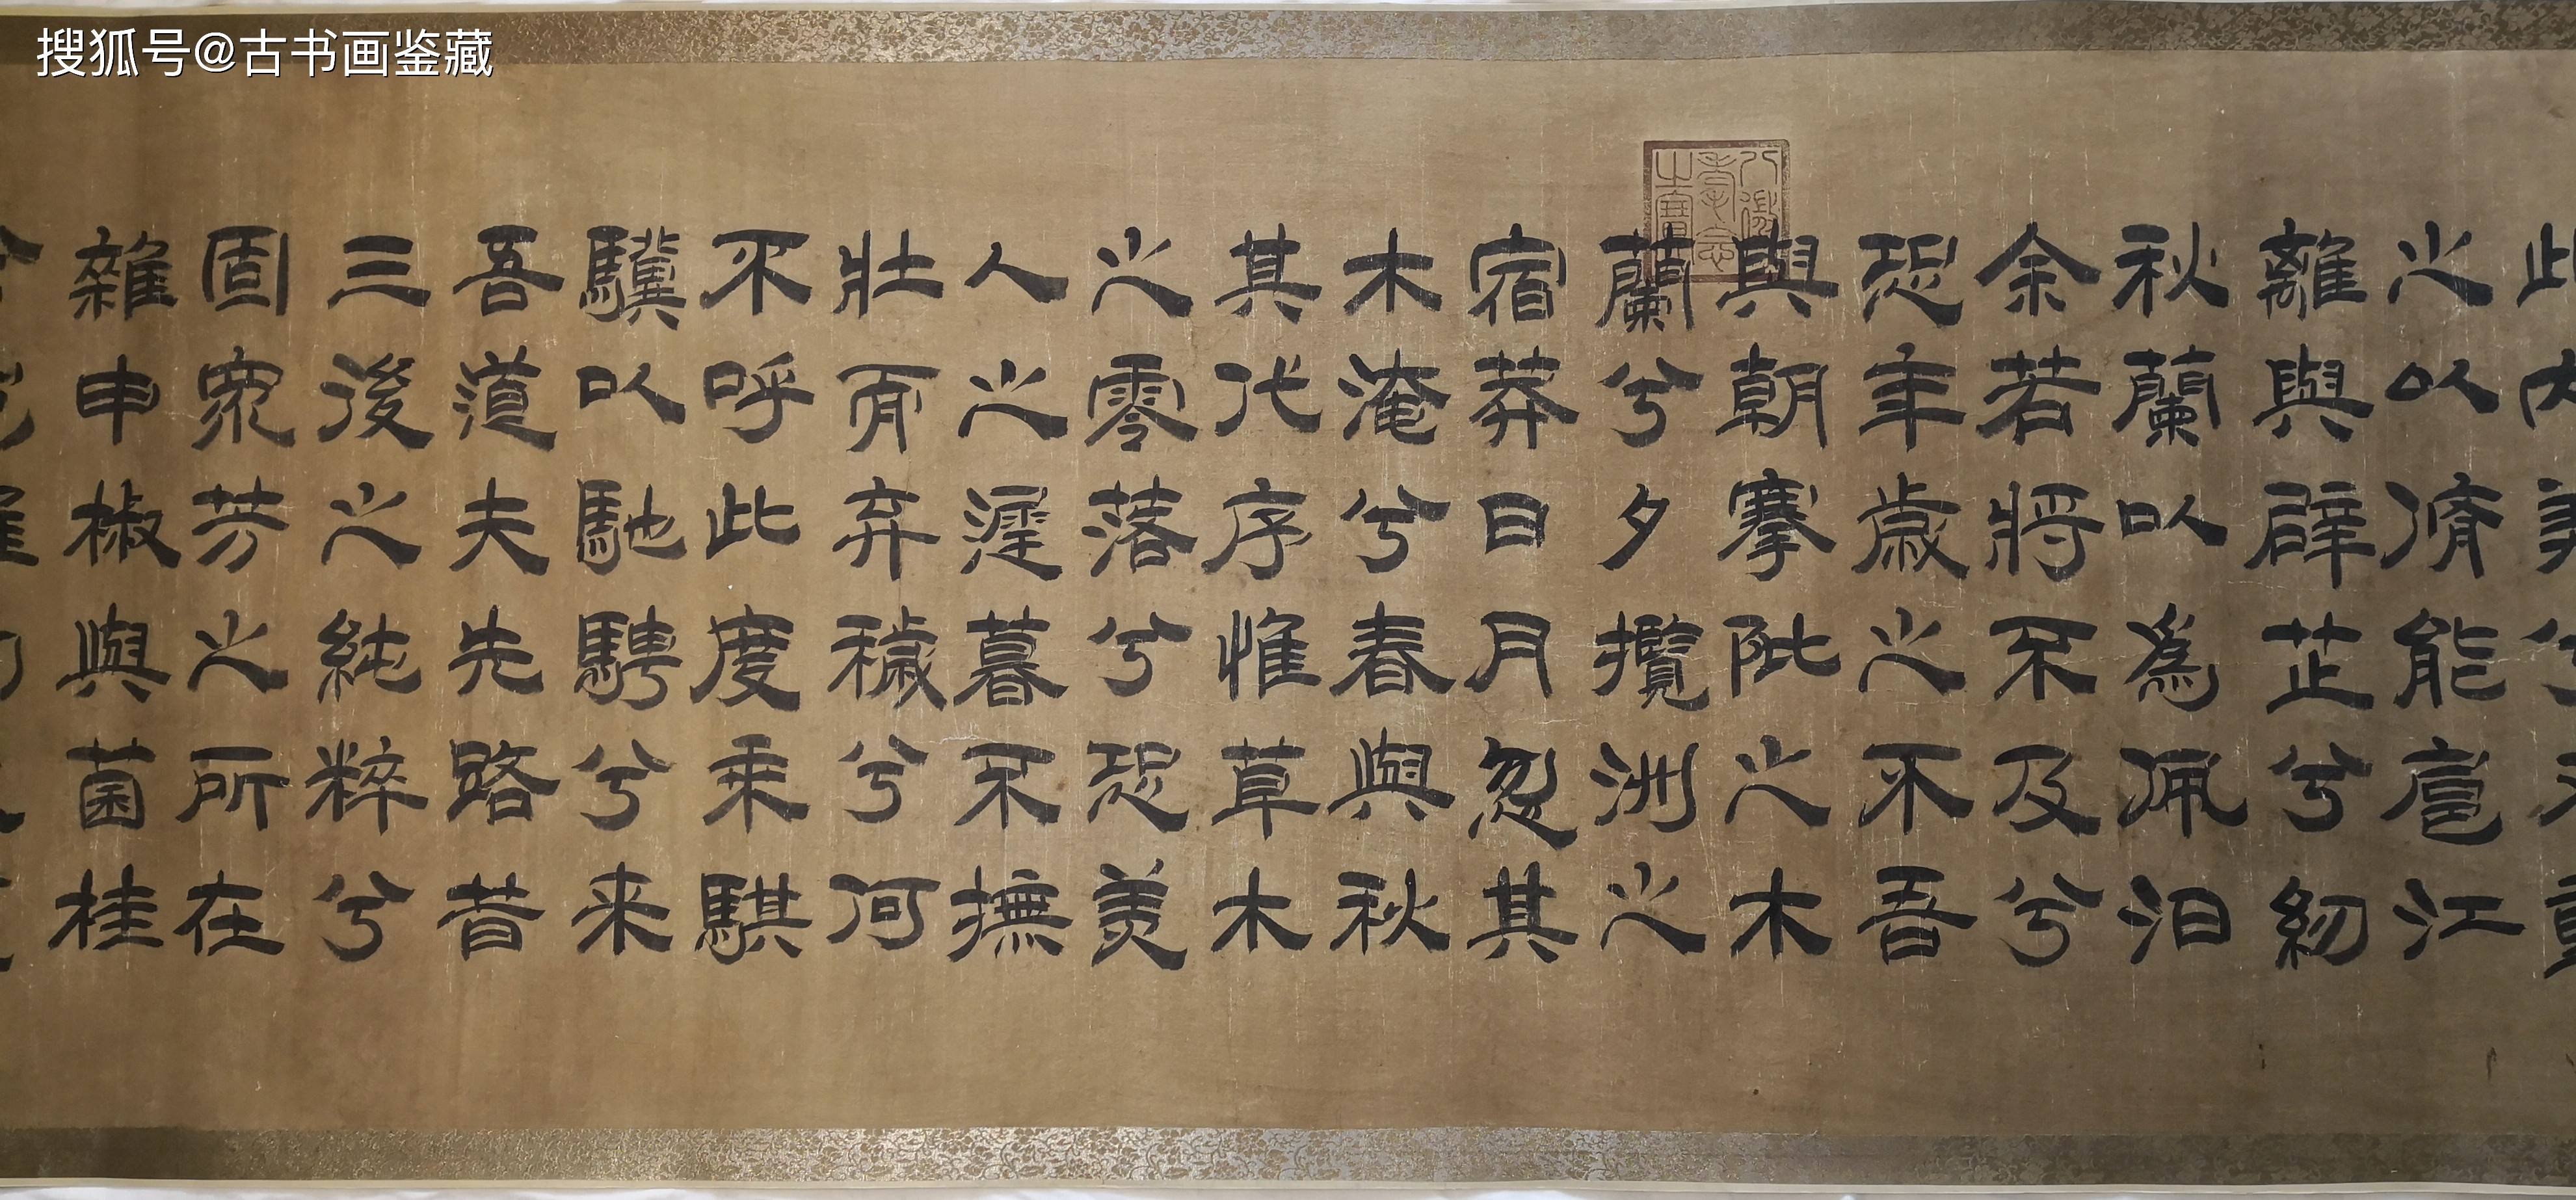 搜狐号@古书画鉴藏
此内美兮又重
之以脩能扈江
離與辟芷兮紉
秋蘭以為佩汩
余若將不及兮
恐年歲之不吾
與朝搴阰之木
蘭兮夕攬洲之
宿莽日月忽其
木淹兮春與秋
其代序惟草木
之零落兮恐美
人之遲暮不撫
壯而弃穢兮何
不呼此度乘騏
驥以馳騁兮来
吾道夫先路昔
三後之純粹兮
固眾芳之所在
雜申椒與菌桂